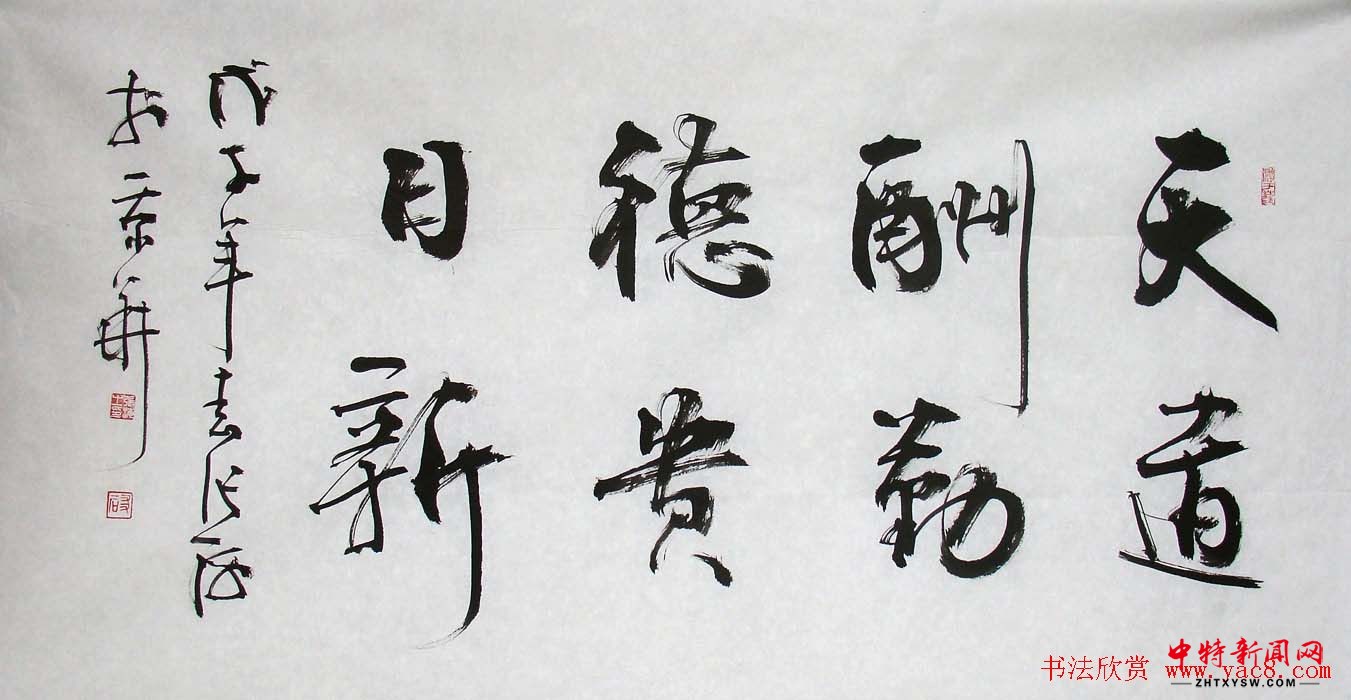 天道
酬勤
德贵
日新
戊子年春张
於京華
中特新闻网
书法欣赏 www.yac8.com
ZHTXYSW.COM